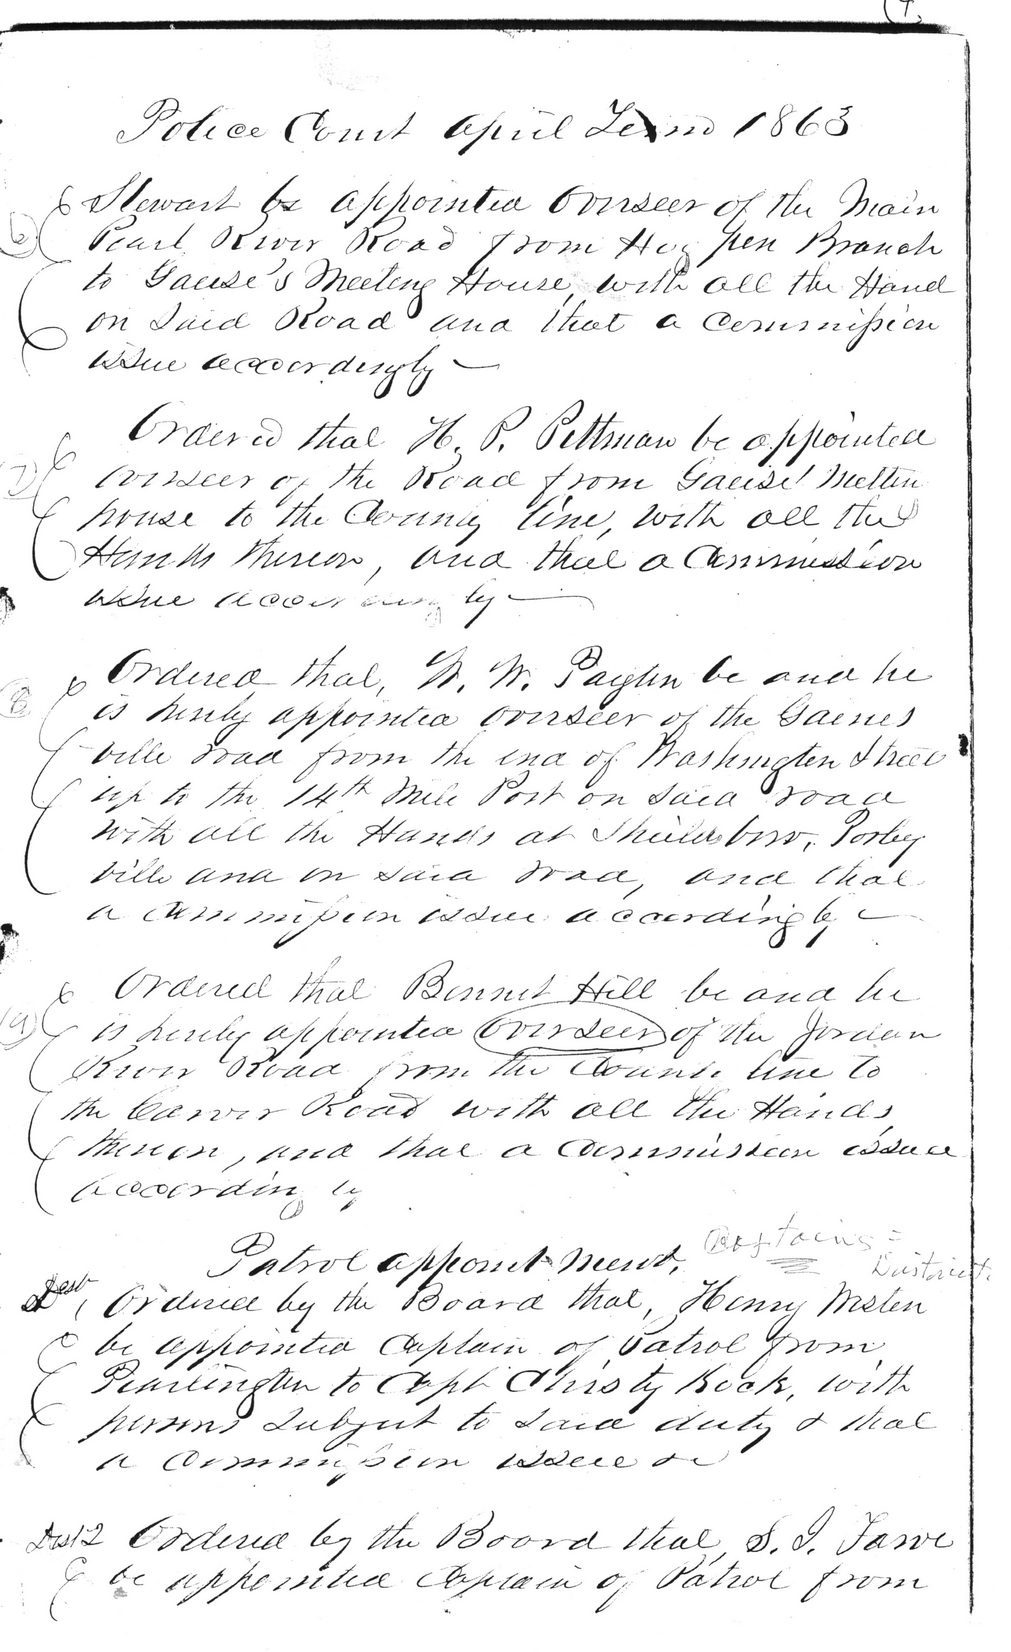 Police Court April Term 1863
Stewart be appointed Overseer of the Main
Pearl River Road from Hog pen Branch
to Gause's Meeting House, with all the Hand
on Said Road and that a Commission
issue accordingly —
Ordered that H. P. Pittman be appointed
overseer of the Road from Gause' Mettin
house to the County line, with all the
Hands thereon, and that a Commission
issue accordingly —
Ordered that, W. W. be and he
is hereby appointed overseer of the Gaines
ville road from the end of Washington Street
up to the 14th Mile Post on said road
with all the Hands at Shieldsboro,
ville and on said road, and that
a Commission issue accordingly —
Ordered that Bennet Hill be and he
is hereby appointed Overseer of the Jordan
River Road from the County line to
the Carver Road with all the Hands
thereon, and that a Commission issue
accordingly
Patrol appointment. Captains =
District.
Dist 1, Ordered by the Board that, Henry Westen
be appointed Captain of Patrol from
Pearlington to Capt Christy Kock, with
persons subject to said duty & that
a Commission issue &c
Dist 2 Ordered by the Board that, S. J.
be appointed Captain of Patrol from